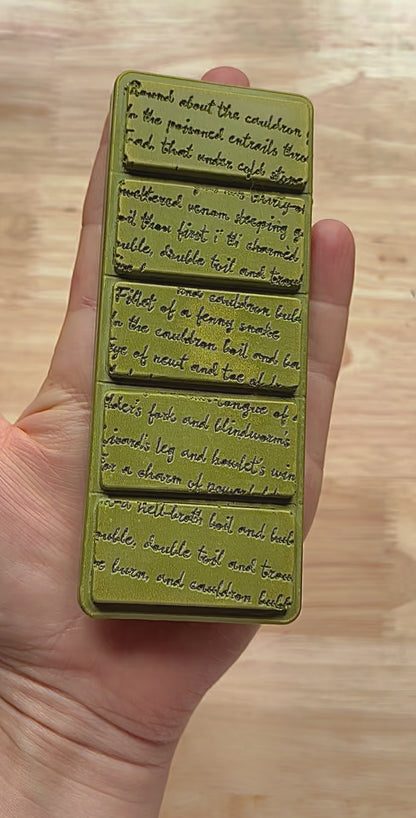 Round about the cauldron
In the poisoned entrails thro
Toad, that under cold stone
thirty-o
weltered venom sleeping g
oil thou first i' th' charmed
ouble, double toil and trou
and cauldron bub
Fillet of a fenny snake
In the cauldron boil and ba
Eye of newt and toe of
tongue of
dder's fork and blindworm's
Lizard's leg and howlet's win
For a charm of powerful
a hell-broth boil and bub
ouble, double toil and trou
e burn, and cauldron bubb